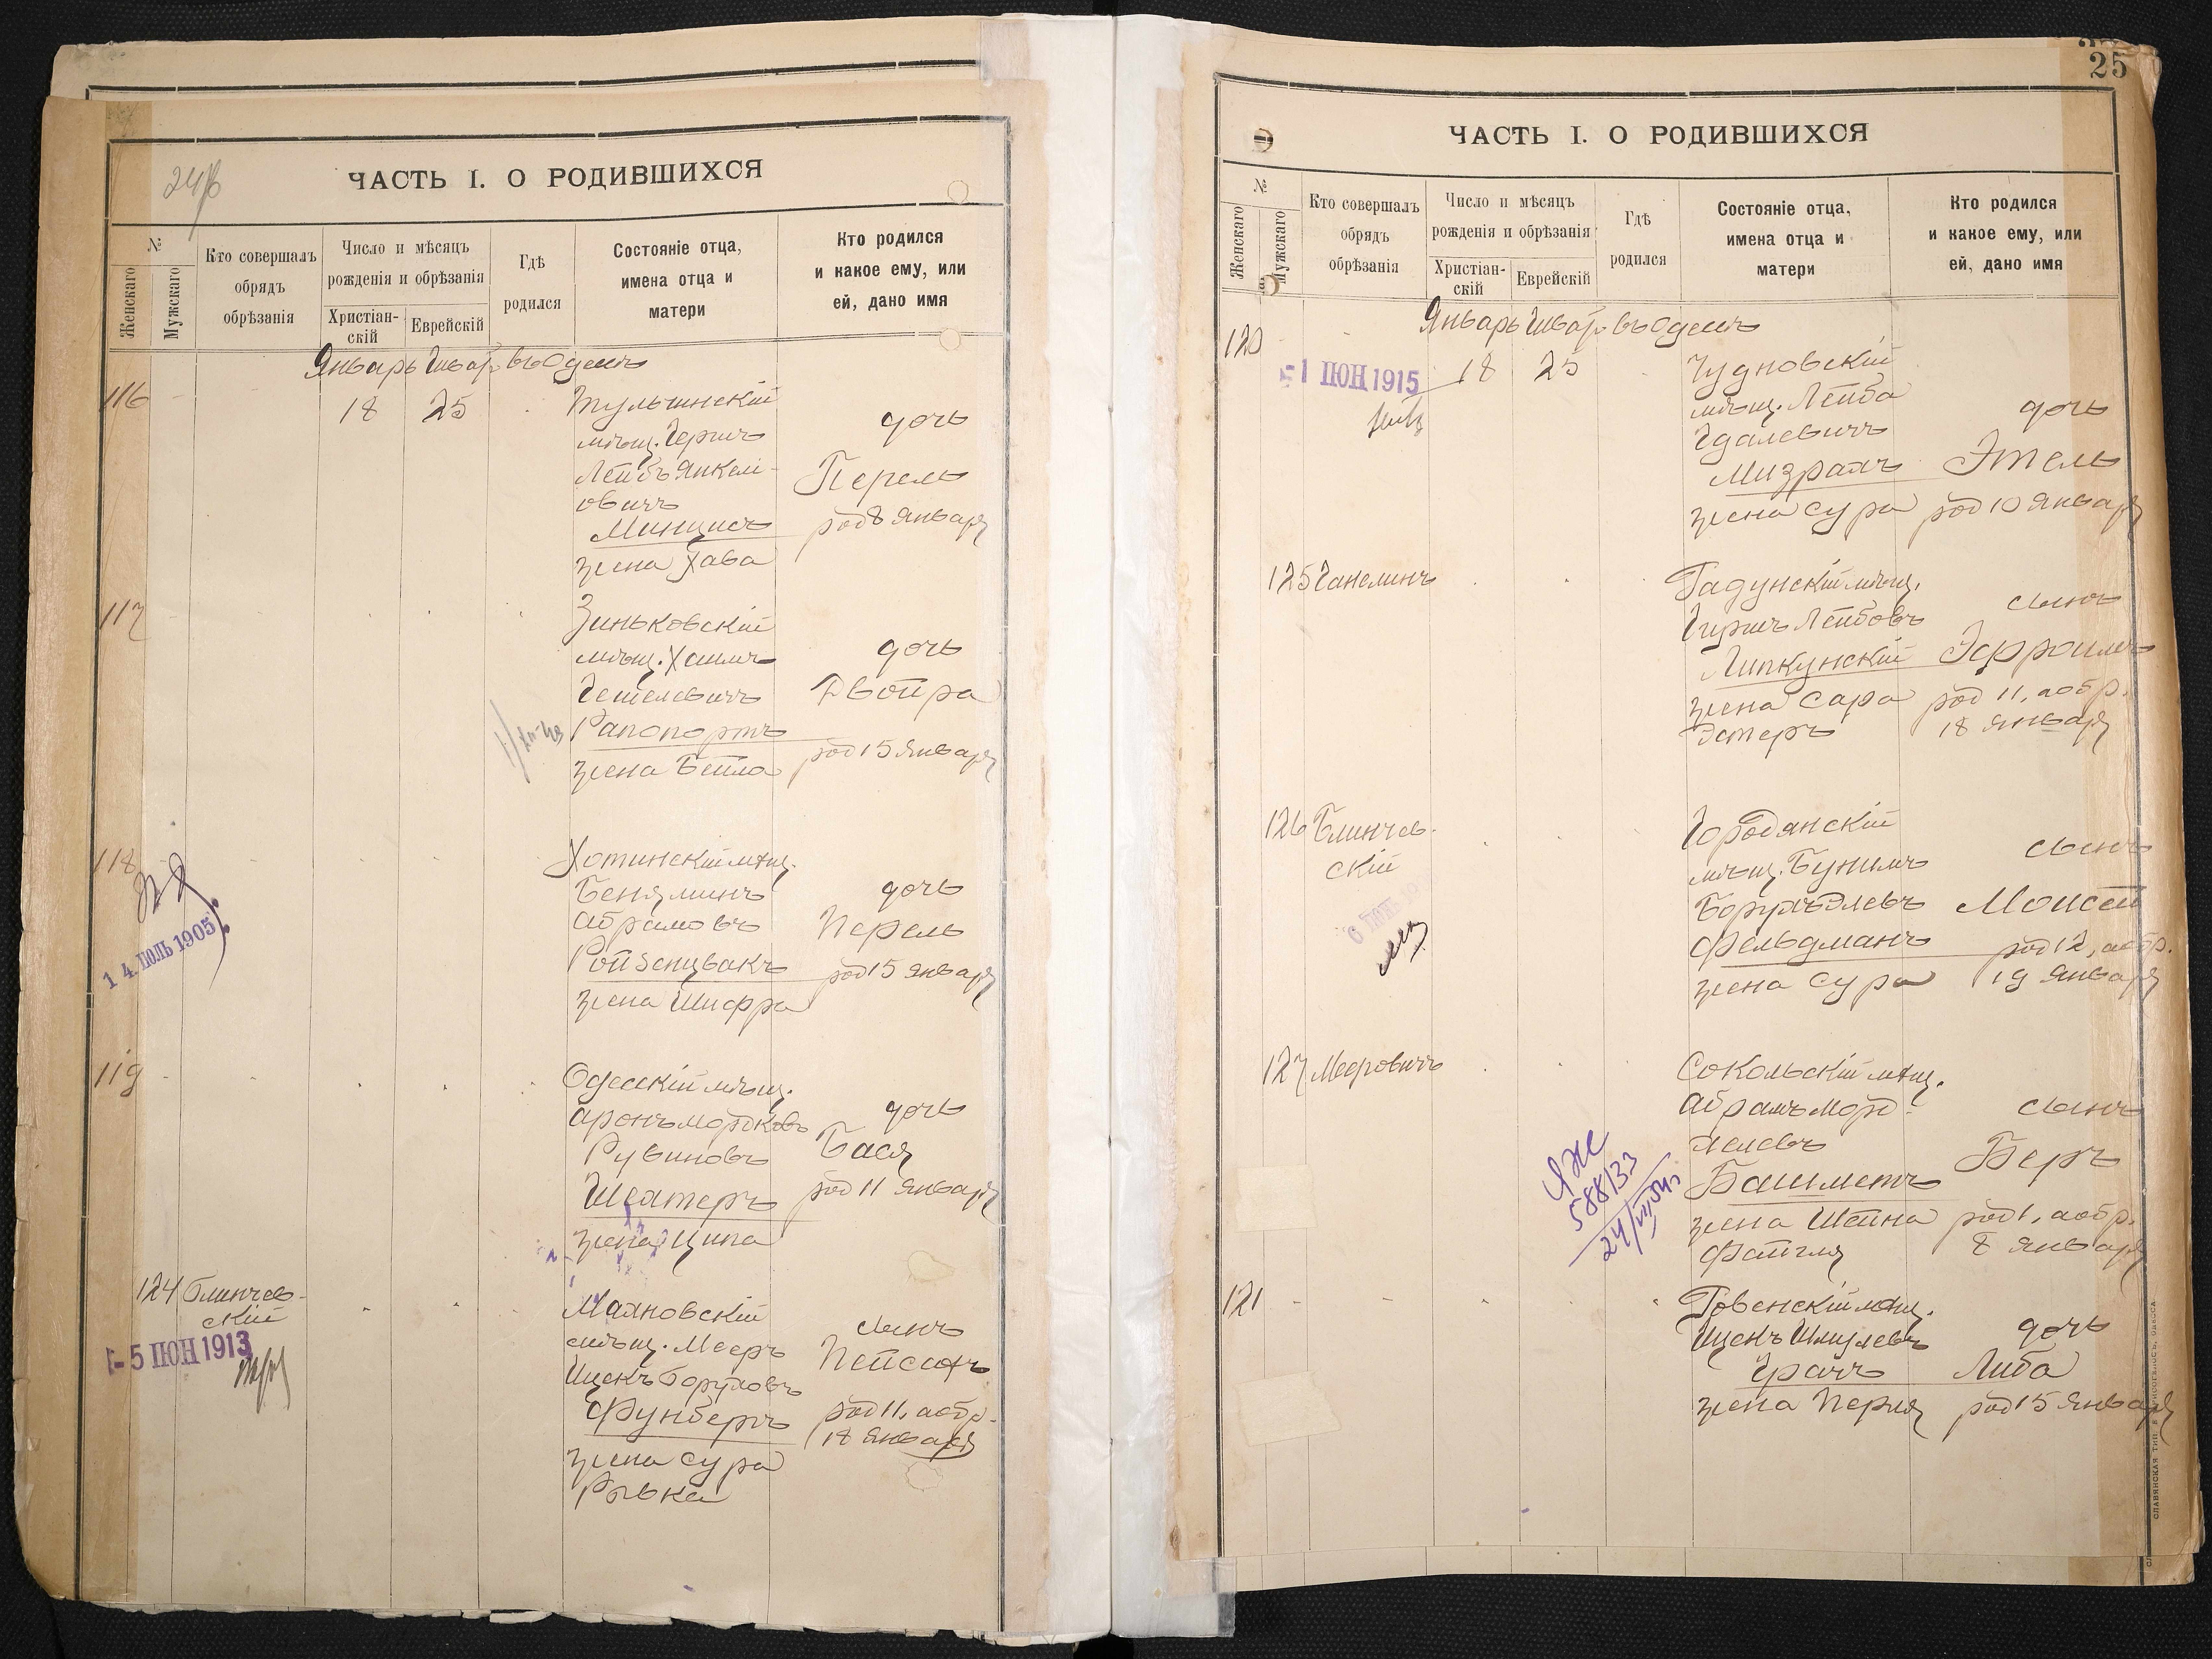 24
ЧАСТЬ I. О РОДИВШИХСЯ
№
Женскаго
Мужскаго
Кто совершалъ
обрядъ
обрѣзанія
Число и мѣсяцъ
рожденія и обрѣзанія
Христіан-
скій
Еврейскій
Гдѣ
родился
Состояніе отца,
имена отца и
матери
Кто родился
и какое ему, или
ей, дано имя
Январь Шватъ въ Одессѣ
116
18
25
Тульчинскій
мѣщ. Гершъ
Лейбъ Янкел-
овичъ
Минцисъ
жена Хава
дочь
Перель
род 8 Января
117
Зиньковскій
мѣщ. Хаимъ
Рапопортъ
жена Бейла
дочь
Двойра
род 15 Января
118
14. ІЮЛЬ 1905
Хотинскій мѣщ.
Беняминъ
Абрамовъ
Ройзенцвакъ
жена Шифра
дочь
Перель
род 15 Января
119
Одесскій мѣщ.
Аронъ Мордковъ
Рувиновъ
Шехтеръ
жена Ципа
дочь
Бася
род 11 Января
124
Блинчев-
скій
- 5 ІЮН 1913
Маяновскій
мѣщ. Мееръ
Ицекъ Боруховъ
жена Сура
Ривка
сынъ
Пейсахъ
род 11, а обр.
18 Января
25
ЧАСТЬ I. О РОДИВШИХСЯ
№
Женскаго
Мужскаго
Кто совершалъ
обрядъ
обрѣзанія
Число и мѣсяцъ
рожденія и обрѣзанія
Христіан-
скій
Еврейскій
Гдѣ
родился
Состояніе отца,
имена отца и
матери
Кто родился
и какое ему, или
ей, дано имя
Январь Шватъ въ Одессѣ
120
1 ІЮН 1915
18
25
Чудновскій
мѣщ. Лейба
Гдалевичъ
Мизрахъ
жена Сура
дочь
Этель
род 10 Января
125
Ганелинъ
Гадунскій мѣщ.
Гиршъ Лейбовъ
Липкунскій
жена Сара
Эстеръ
сынъ
Эфроимъ
род 11, а обр.
18 Января
126
Блинчев-
скій
Городянскій
мѣщ. Бунимъ
Борухъ Элевъ
Фельдманъ
жена Сура
сынъ
Моисей
род 12, а обр.
19 Января
127
Мееровичъ
Сокольскій мѣщ.
Абрамъ Морд-
хелевъ
Башметъ
жена Шейна
Фейгля
сынъ
Беръ
род 1, а обр.
8 Января
588133
121
Ровенскій мѣщ.
Ицекъ Шмулевъ
Грачъ
жена Перля
дочь
Либа
род 15 Января